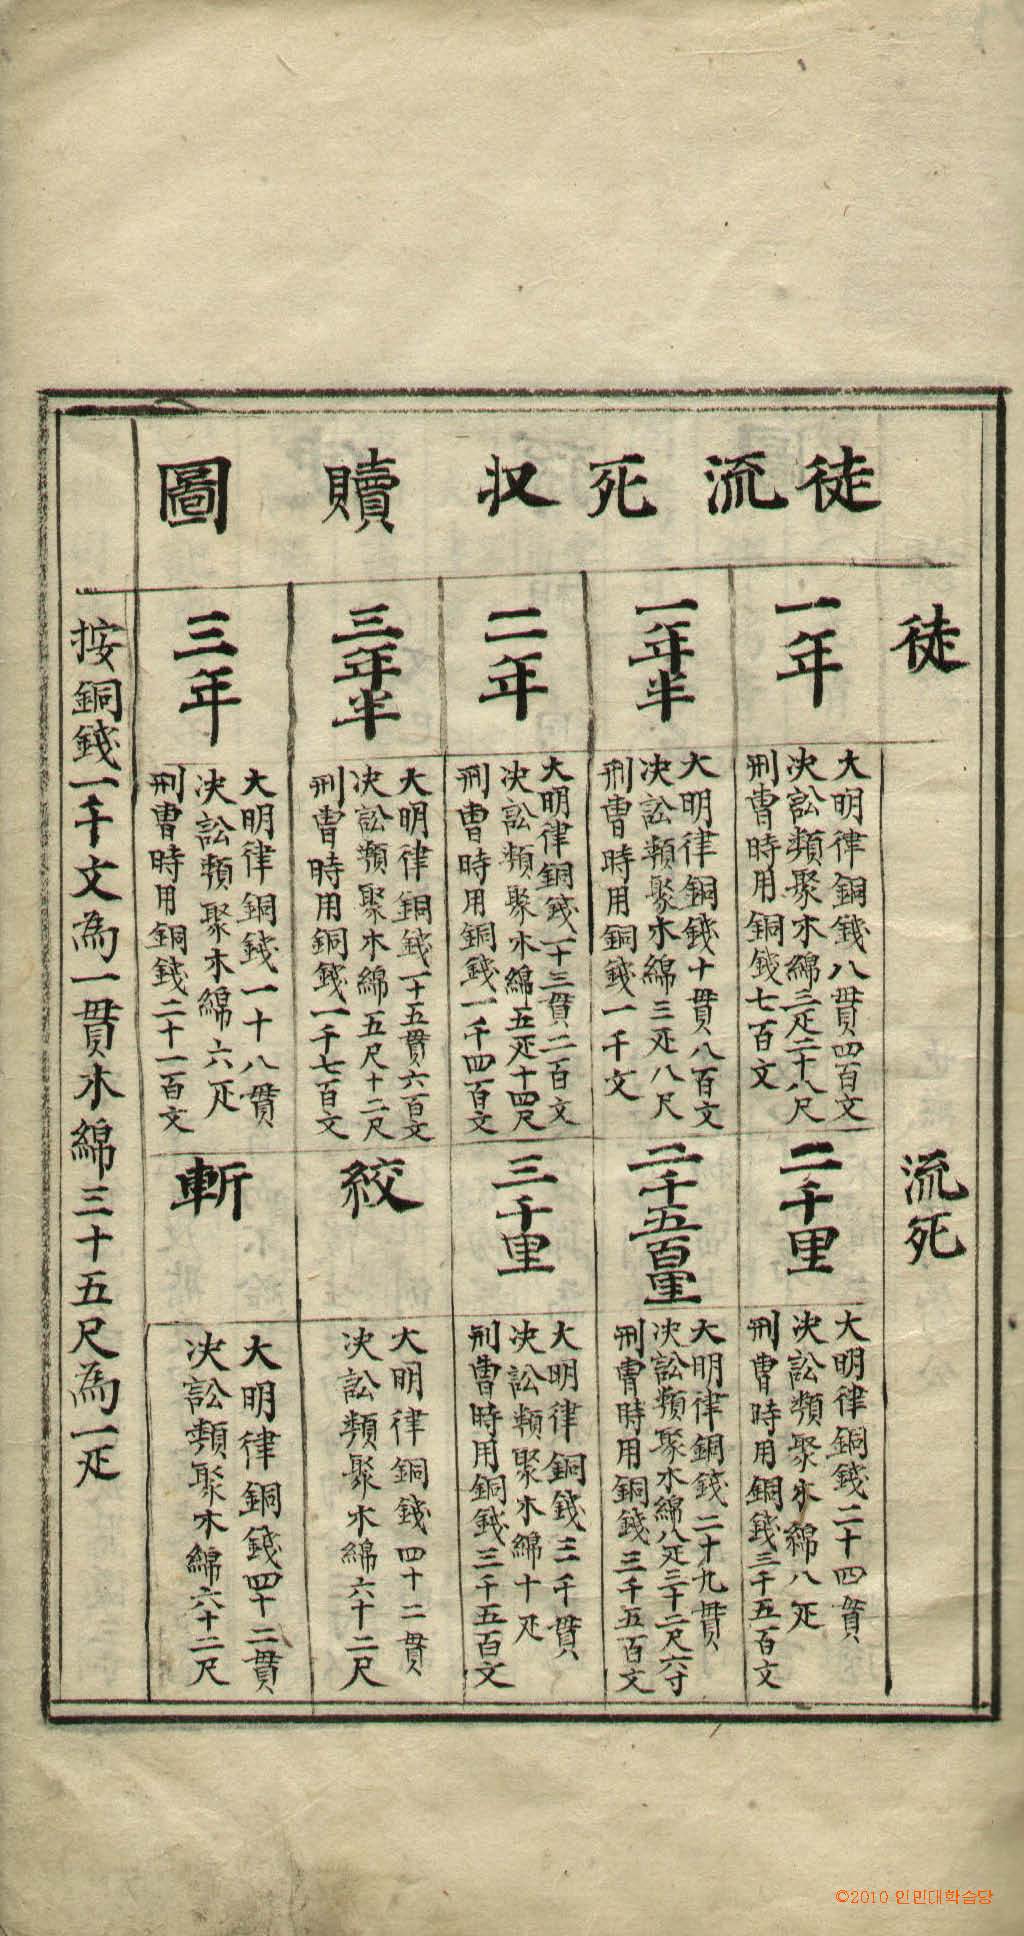 徒流死収贖圖
徒
一年
大明律銅錢八貫四百文
决訟類聚木綿三疋二十八尺
刑曹時用銅錢七百文
一年半
大明律銅錢十貫八百文
决訟類聚木綿三疋八尺
刑曹時用銅錢一千文
二年
大明律銅錢一十三貫二百文
决訟類聚木綿五疋十四尺
刑曹時用銅錢一千四百文
三年半
大明律銅錢一十五貫六百文
决訟類聚木綿五尺十二尺
刑曹時用銅錢一千七百文
三年
大明律銅錢一十八貫
决訟類聚木綿六疋
刑曹時用銅錢二十一百文
流死
二千里
大明律銅錢二十四貫
决訟類聚木綿八疋
刑曹時用銅錢三千五百文
二千五百里
大明律銅錢二十九貫
决訟類聚木綿八疋三十二尺六寸
刑曹時用銅錢三千五百文
三千里
大明律銅錢三千貫
决訟類聚木綿十疋
刑曹時用銅錢三千五百文
絞
大明律銅錢四十二貫
决訟類聚木綿六十二尺
斬
大明律銅錢四十二貫
决訟類聚木綿六十二尺
按銅錢一千文為一貫木綿三十五尺為一疋
©2010 인민대학습당